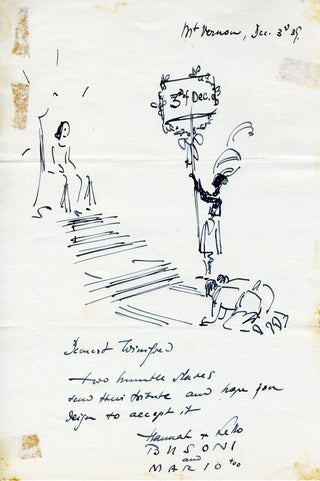 Mt Vernon, Dec. 3rd 39.
3rd Dec.
Dearest Winifred
two humble slaves
send their tribute and hope you
deign to accept it
Hannah + Lello
BUSONI
and
MARIO too